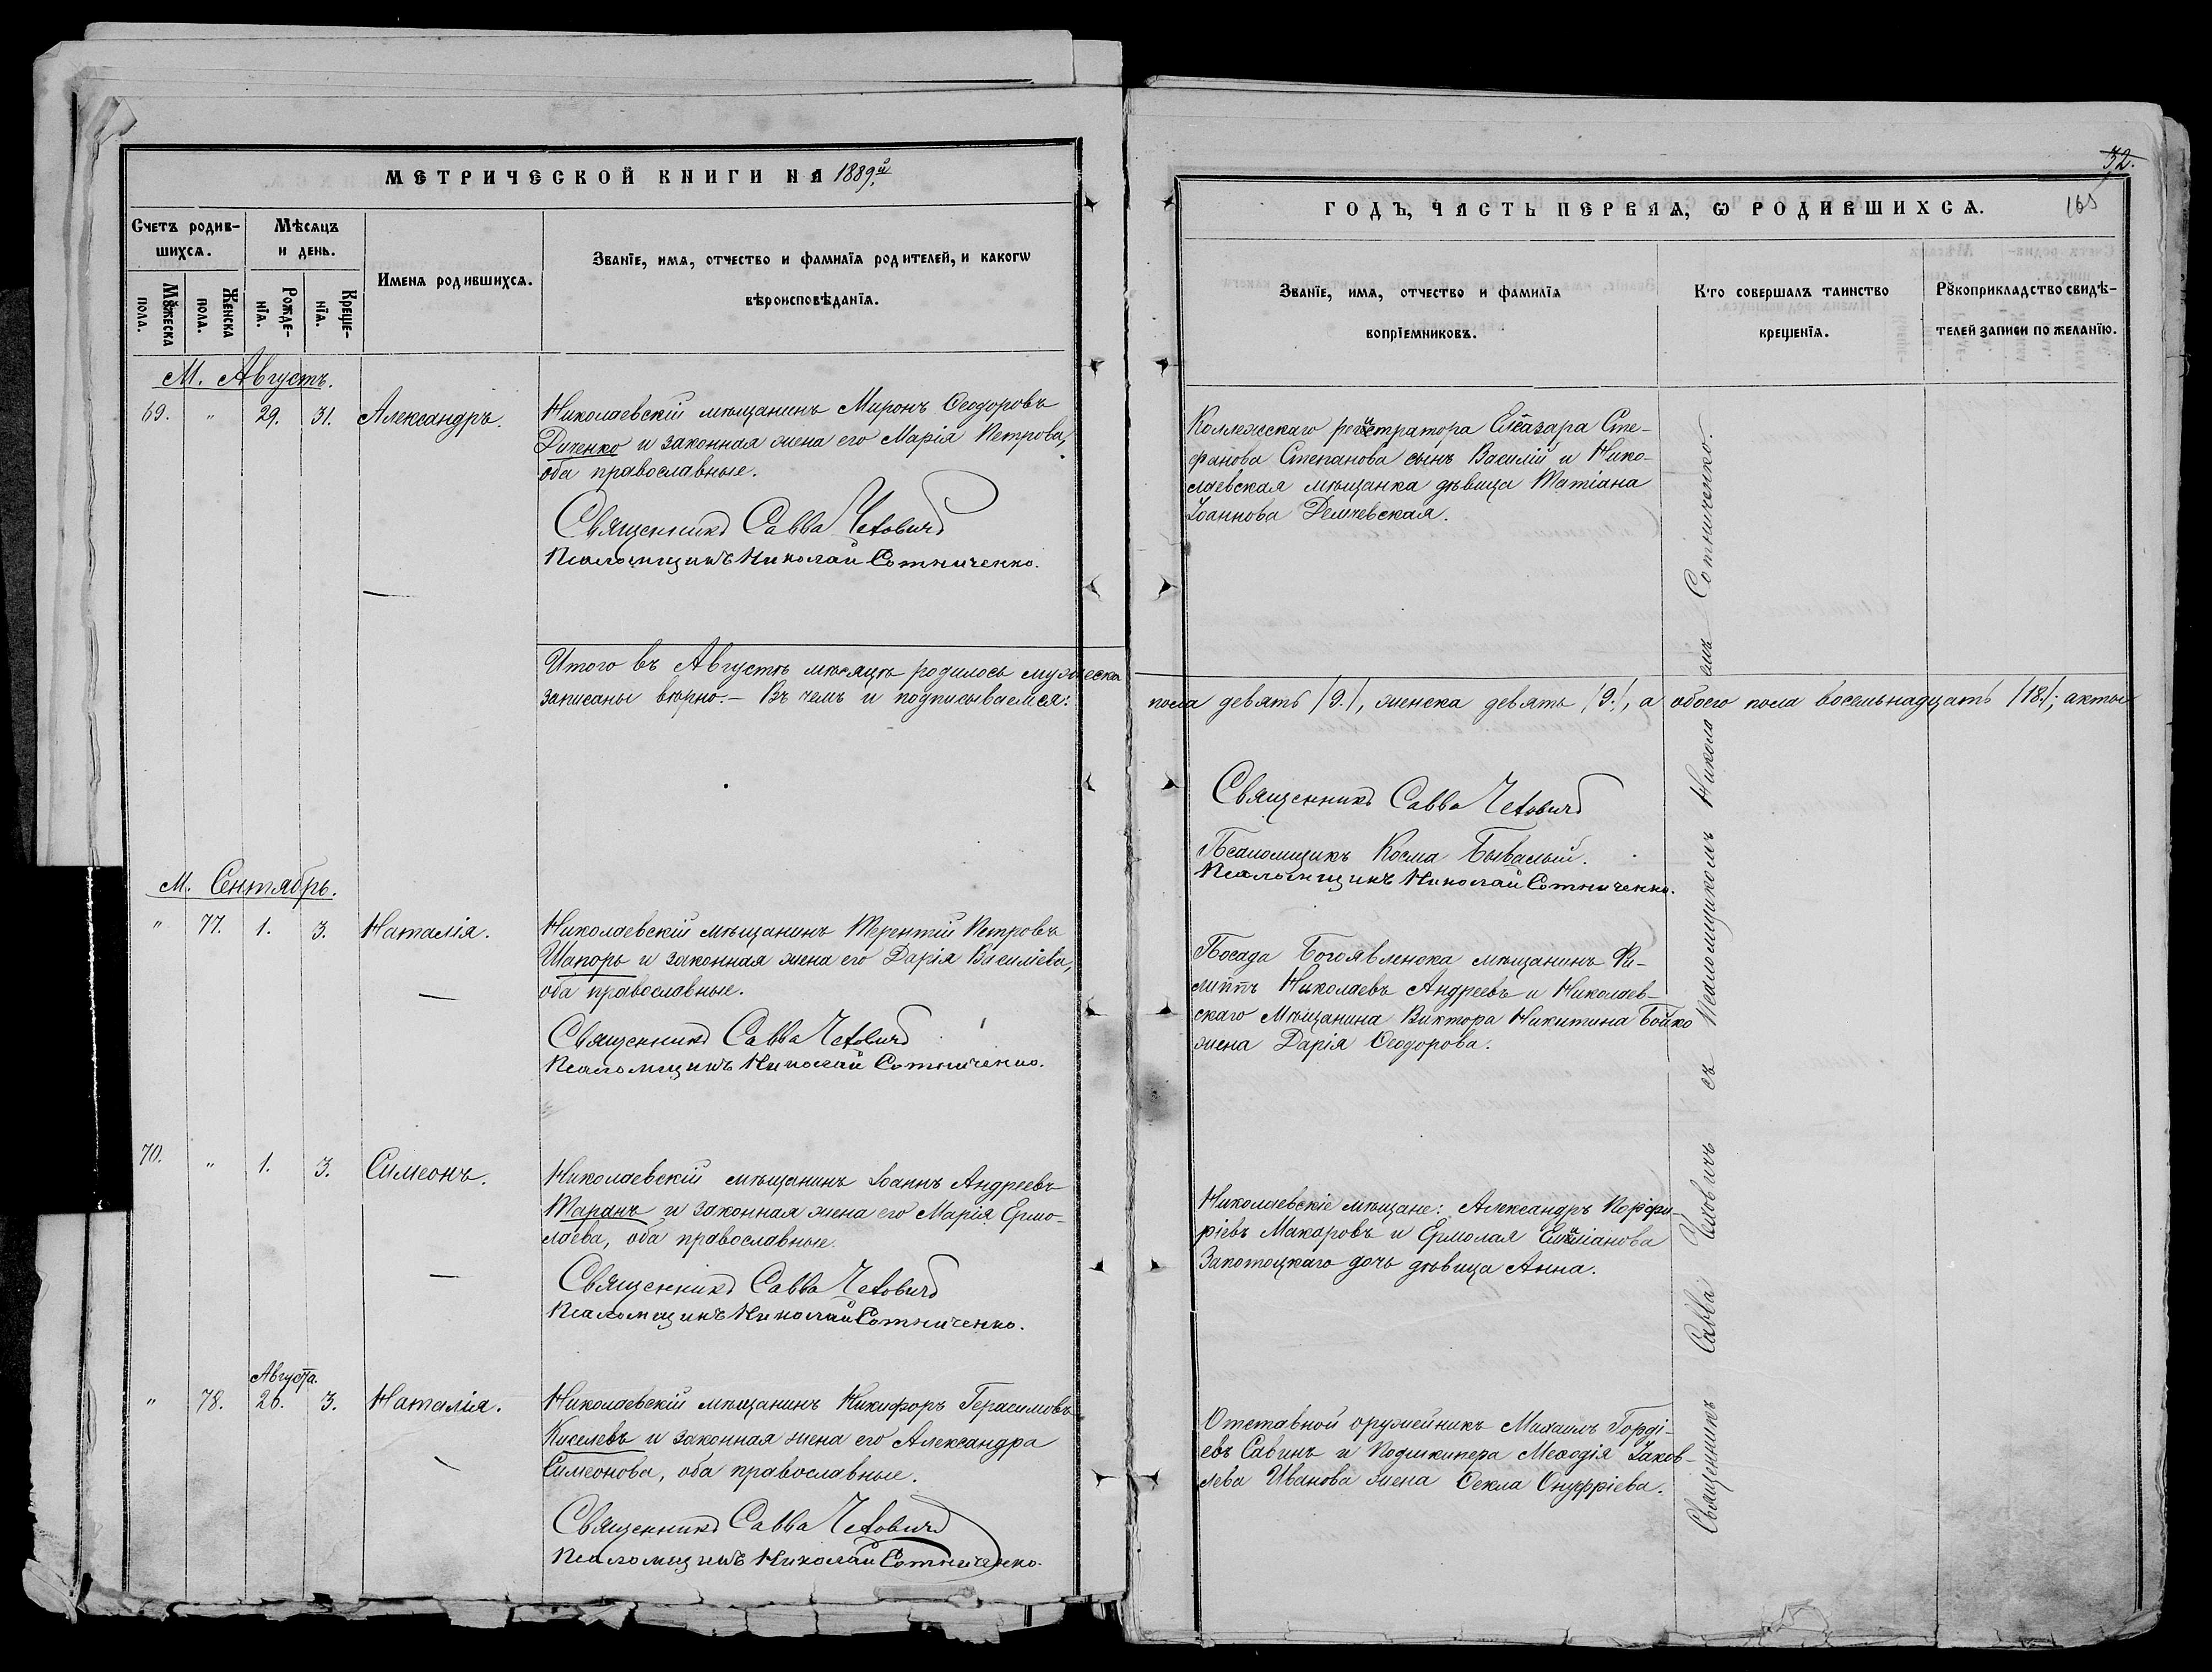 МЕТРИЧЕСКОЙ КНИГИ НА 1889й
Счетъ родив-
шихсѧ.
Мѣсѧцъ
и день.
Имена родившихсѧ.
Званїе, имѧ, отчество и фамилїѧ родителей, и какогѡ
вѣроисповѣданїѧ.
Мꙋжеска
пола.
Женска
пола.
Рожде-
нїѧ.
Креще-
нїѧ.
М. Августъ.
69. " 29. 31. Александръ.
Николаевскій мѣщанинъ Миронъ Ѳеодоровъ
Диченко и законная жена его Марія Петрова,
оба православные.
Священникъ Савва Чехович
Псаломщикъ Николай Сотниченко.
Итого въ Августѣ мѣсяцѣ родилось мужеска
записаны вѣрно. – Въ чемъ и подписываемся:
М. Сентябрь.
" 77. 1. 3. Наталія.
Николаевскій мѣщанинъ Терентій Петровъ
Шапорь и законная жена его Дарія Василіева,
оба православные.
Священникъ Савва Чехович
Псаломщикъ Николай Сотниченко.
70. " 1. 3. Симеонъ.
Николаевскій мѣщанинъ Іоаннъ Андреевъ
Таранъ и законная жена его Марія Ермо-
лаева, оба православные.
Священникъ Савва Чехович
Псаломщикъ Николай Сотниченко.
Августа.
" 78. 26. 3. Наталія.
Николаевскій мѣщанинъ Никифоръ Герасимовъ
Киселевъ и законная жена его Александра
Симеонова, оба православные.
Священникъ Савва Чехович
Псаломщикъ Николай Сотниченко.
32.
165
ГОДЪ, ЧАСТЬ ПЕРВАѦ, Ѡ РОДИВШИХСѦ.
Званїе, имѧ, отчество и фамилїѧ
вопрїемниковъ.
Кто совершалъ таинство
крещенїѧ.
Рꙋкоприкладство свидѣ-
телей записи по желанїю.
Коллежскаго регистратора Елеазара Сте-
фанова Степанова сынъ Василій и Нико-
лаевская мѣщанка дѣвица Татіана
Іоаннова Демчевская.
пола девять /9./, женска девять /9./, а обоего пола восемьнадцать /18./; акты
Священникъ Савва Чехович
Псаломщикъ Косма Бывалый.
Псаломщикъ Николай Сотниченко.
Посада Богоявленска мѣщанинъ Фи-
липпъ Николаевъ Андреевъ и Николаев-
скаго Мѣщанина Виктора Никитина Бойко
жена Дарія Ѳеодорова.
Николаевскіе мѣщане: Александръ Порфи-
ріевъ Макаровъ и Ермолая
Закотецкаго дочь дѣвица Анна.
Отставной оружейникъ Михаилъ Горді-
евъ Савинъ и Подшкипера Меѳодія Іаков-
лева Иванова жена Ѳекла Онуфріева.
Священникъ Савва Чеховичъ съ псаломщикомъ Николаемъ Сотниченко.